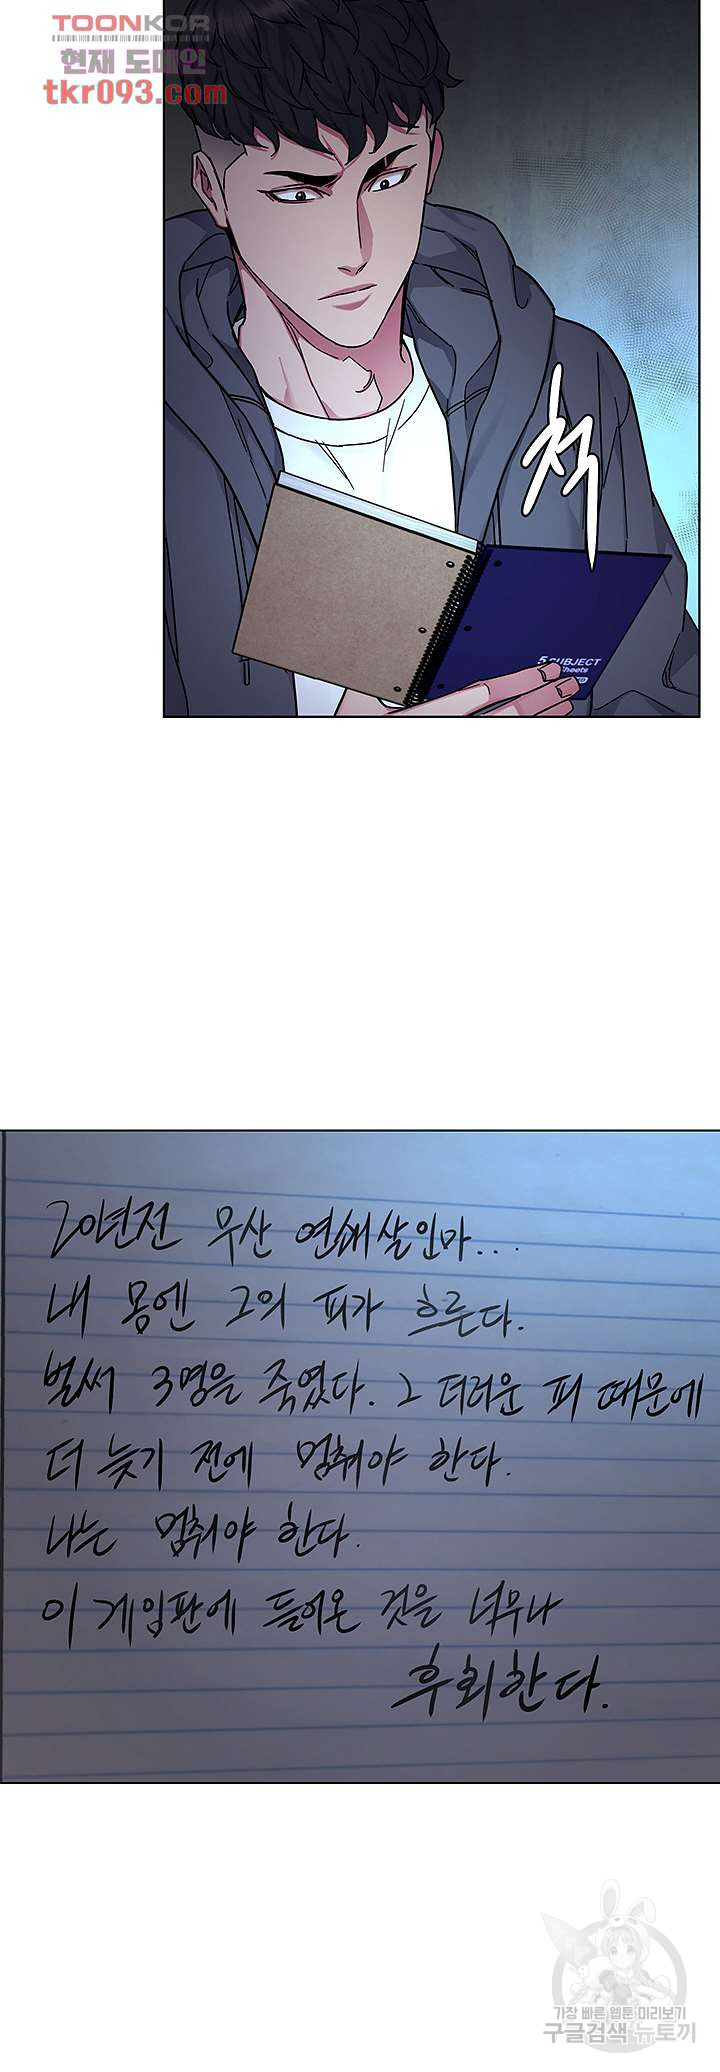 TOONKOR
현재 도메인
tkr093.com
척
5 SUBJECT
Sheets
20년전 무산 연쇄살인마...
내 몸엔 그의 피가 흐른다.
벌써 3명을 죽였다. 그 더러운 피 때문에
더 늦기 전에 멈춰야 한다.
나는 멈춰야 한다.
이 게임판에 들어온 것을 너무나
후회한다.
가장 빠른 웹툰 미리보기
구글검색 뉴토끼